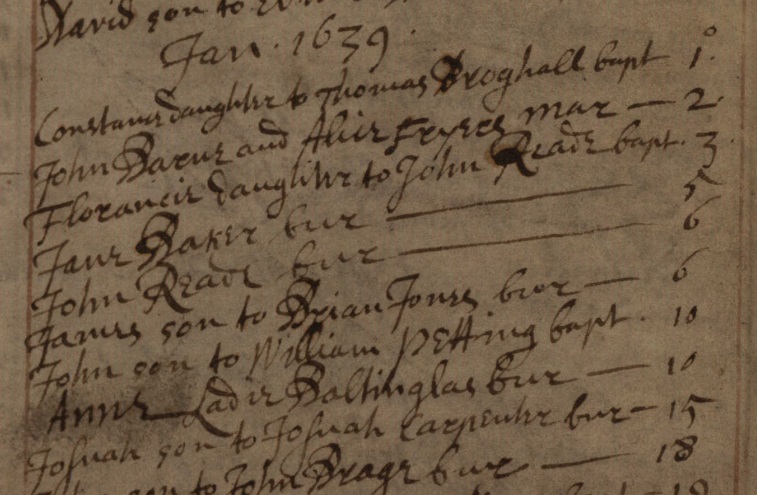 David son to
Jan. 1639.
Constance daughter to Thomas Broghall bapt 1°.
John Barne and Alice Fryers mar — 2.
Florancie daughter to John Reade bapt. 3
Jane Baker bur — 5
John Reade bur — 6
James son to Brian Jones bur — 6
John son to William Petting bapt. 10
Anne Ladie Baltinglas bur — 10
Josuah son to Josuah Carpenter bur — 15
son to John Brage bur — 18
19